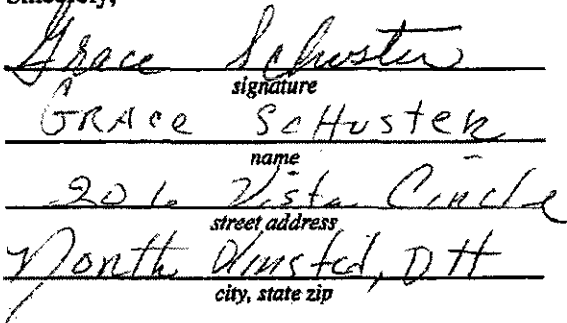 Sincerely,
Grace Schuster
signature
GRACe ScHusteR
name
206 Vista Circle
street address
North Olmsted, OH
city, state zip